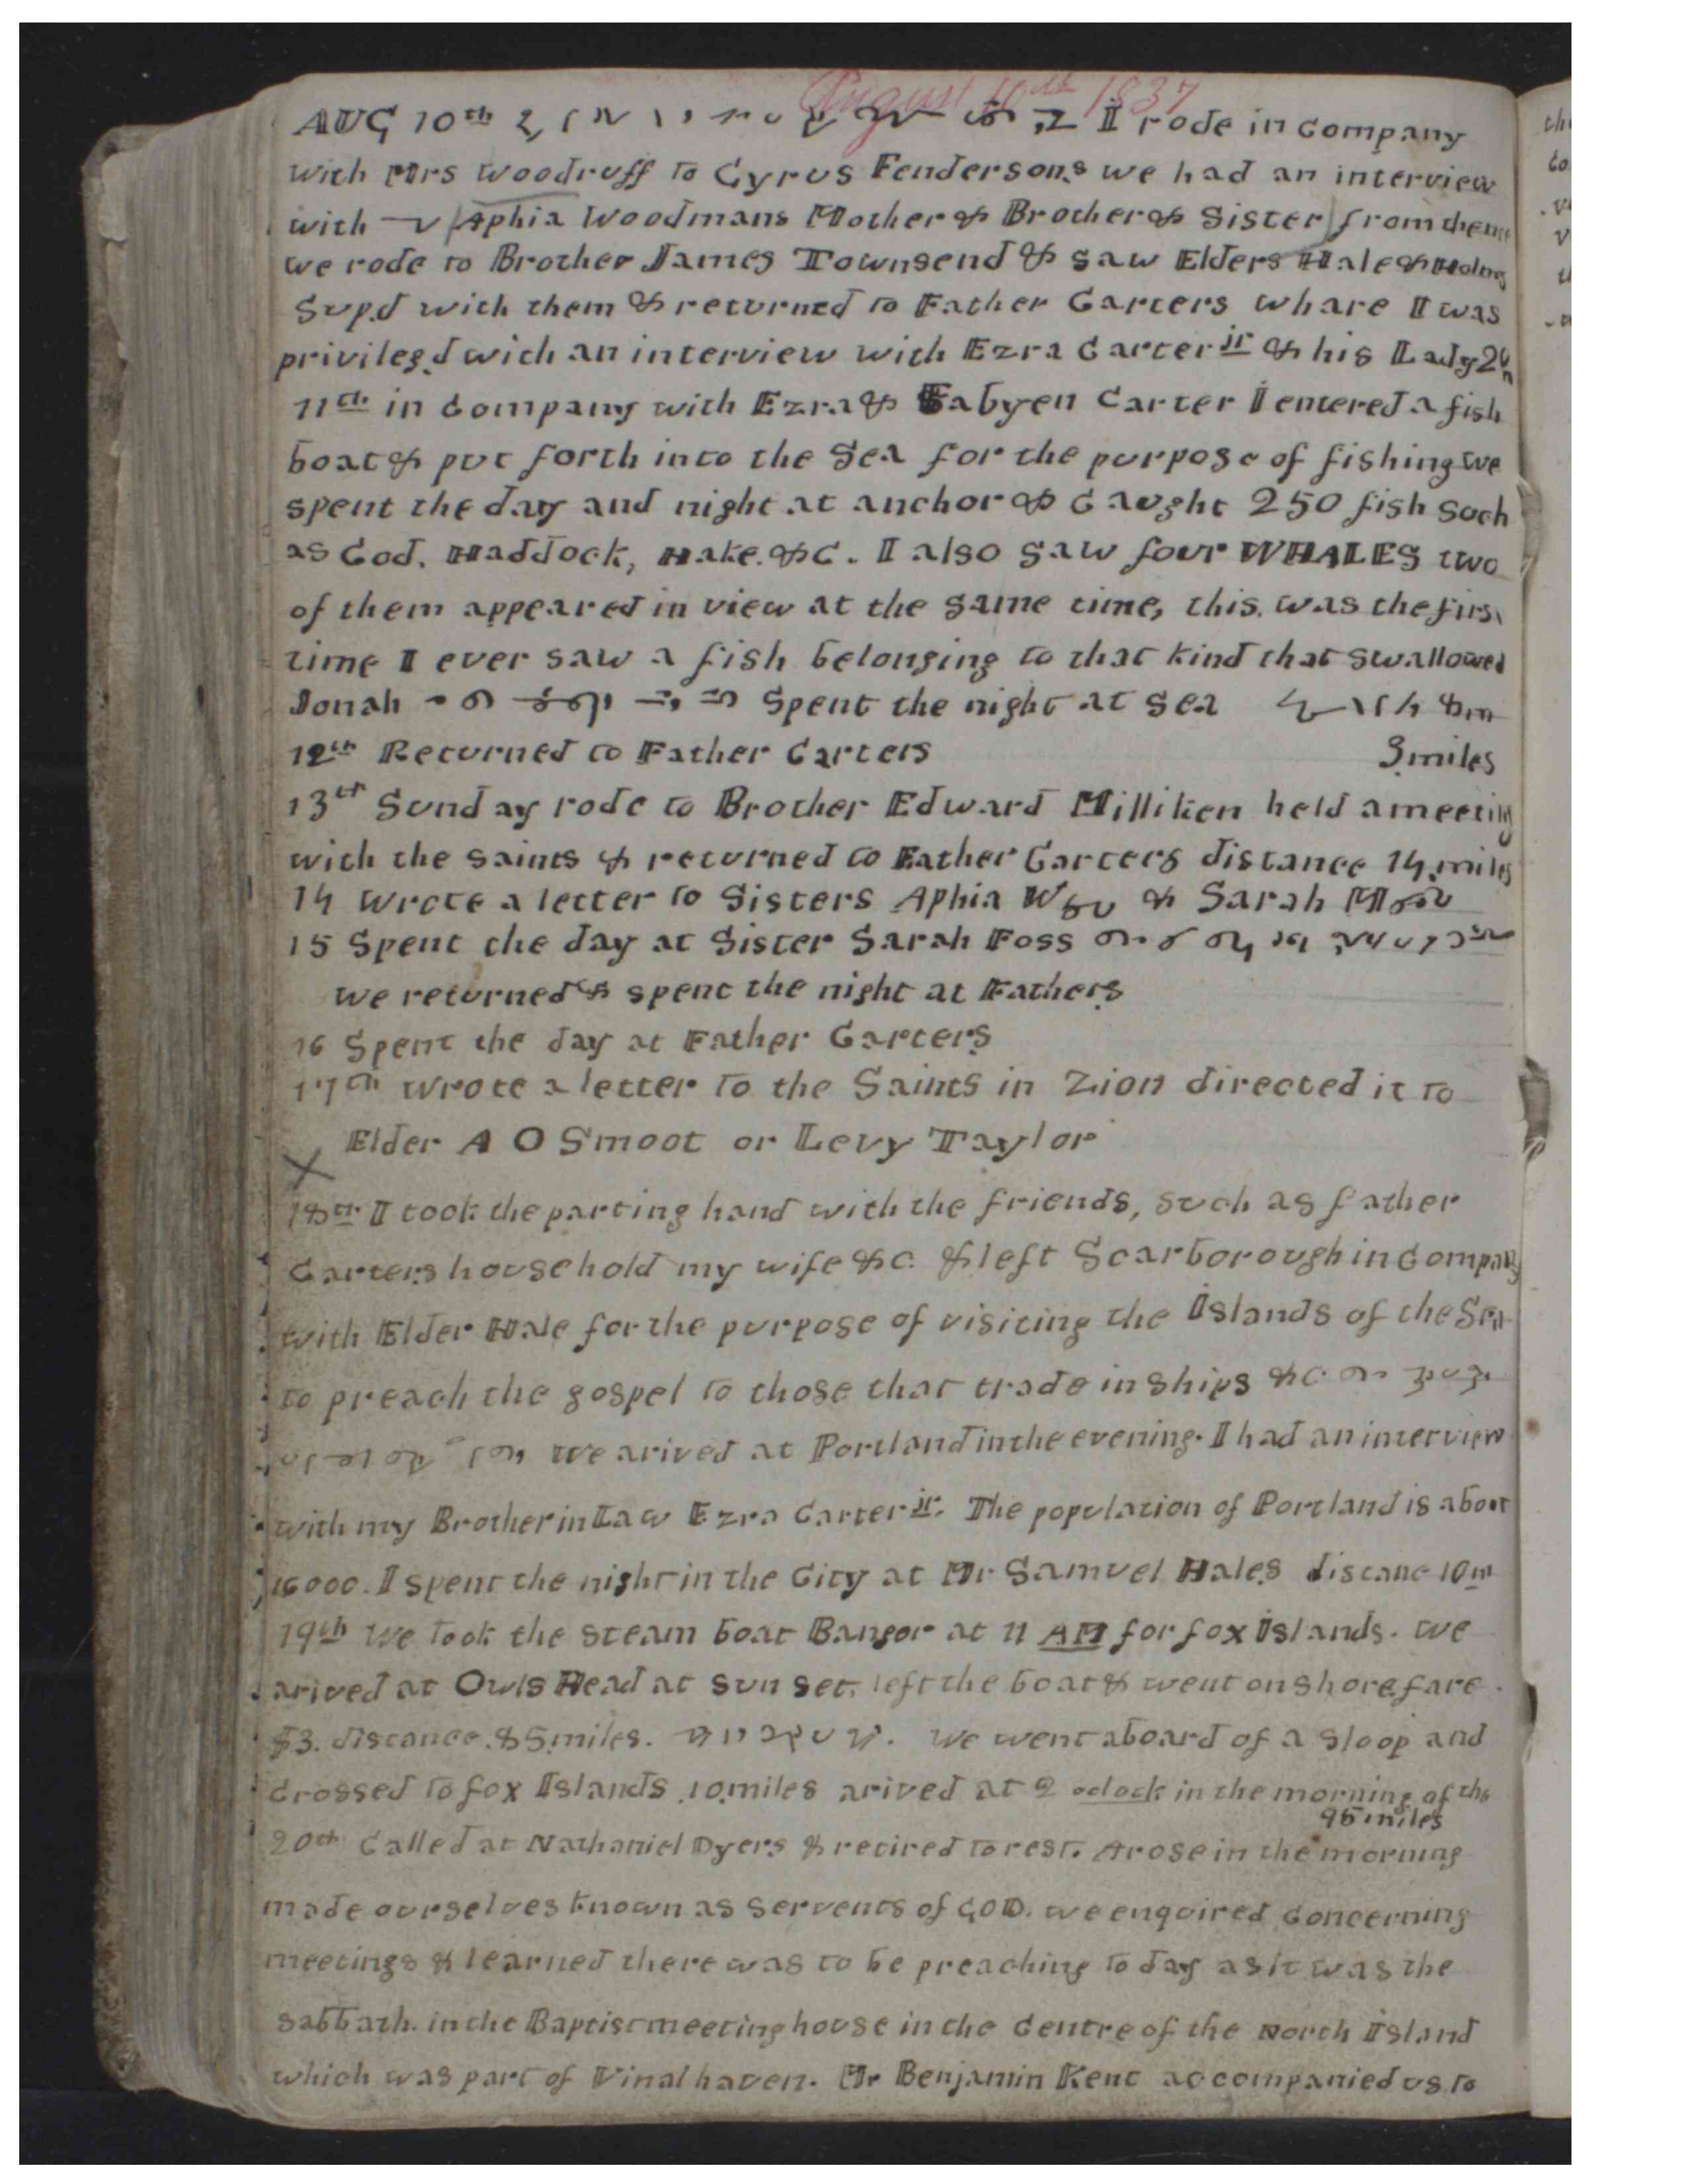 August 10th 1837
AUG 10th I rode in Company
with Mrs Woodruff to Cyrus Fendersons we had an interview
with Aphia Woodmans Mother & Brother & Sister from thence
we rode to Brother James Townsend & saw Elders Hale & Holms
Sup.d with them & returned to Father Carters whare I was
privileg.d with an interview with Ezra Carter jr & his Lady
11th in Company with Ezra & Fabyen Carter I entered a fish
boat & put forth into the Sea for the purpose of fishing we
spent the day and night at anchor & Caught 250 fish such
as Cod. Haddock, Hake. &C. I also saw four WHALES two
of them appeared in view at the same time, this was the first
time I ever saw a fish belonging to that kind that swallowed
Jonah Spent the night at Sea 8 m
12th Returned to Father Carters 3 miles
13th Sunday rode to Brother Edward Milliken held a meeting
with the saints & returned to Father Carters distance 14 miles
14 wrote a letter to Sisters Aphia & Sarah
15 Spent the day at Sister Sarah Foss
we returned & spent the night at Fathers
16 Spent the day at Father Carters
17th wrote a letter to the Saints in Zion directed it to
Elder A O Smoot or Levy Taylor
X
18th I took the parting hand with the friends, such as father
Carters household my wife &c. & left Scarborough in Company
with Elder Hale for the purpose of visiting the Islands of the Sea
to preach the gospel to those that trade in ships &c
we arived at Portland in the evening. I had an interview
with my Brother in Law Ezra Carter jr. The population of Portland is about
16000. I spent the night in the City at Mr Samuel Hales distanc 10 m
19th we took the steam boat Bangor at 11 AM for fox Islands. we
arived at Owls Head at sun set. left the boat & went on shore fare
$3. distance 85 miles. We went aboard of a sloop and
Crossed to fox Islands 10 miles arived at 2 oclock in the morning of the
95 miles
20th Called at Nathaniel Dyers & retired to rest. Arose in the morning
made ourselves known as servents of GOD. we enquired Concerning
meetings & learned there was to be preaching to day as it was the
sabbath. in the Baptist meeting house in the Centre of the North Island
which was part of Vinalhaven. Mr Benjamin Kent accompanied us to